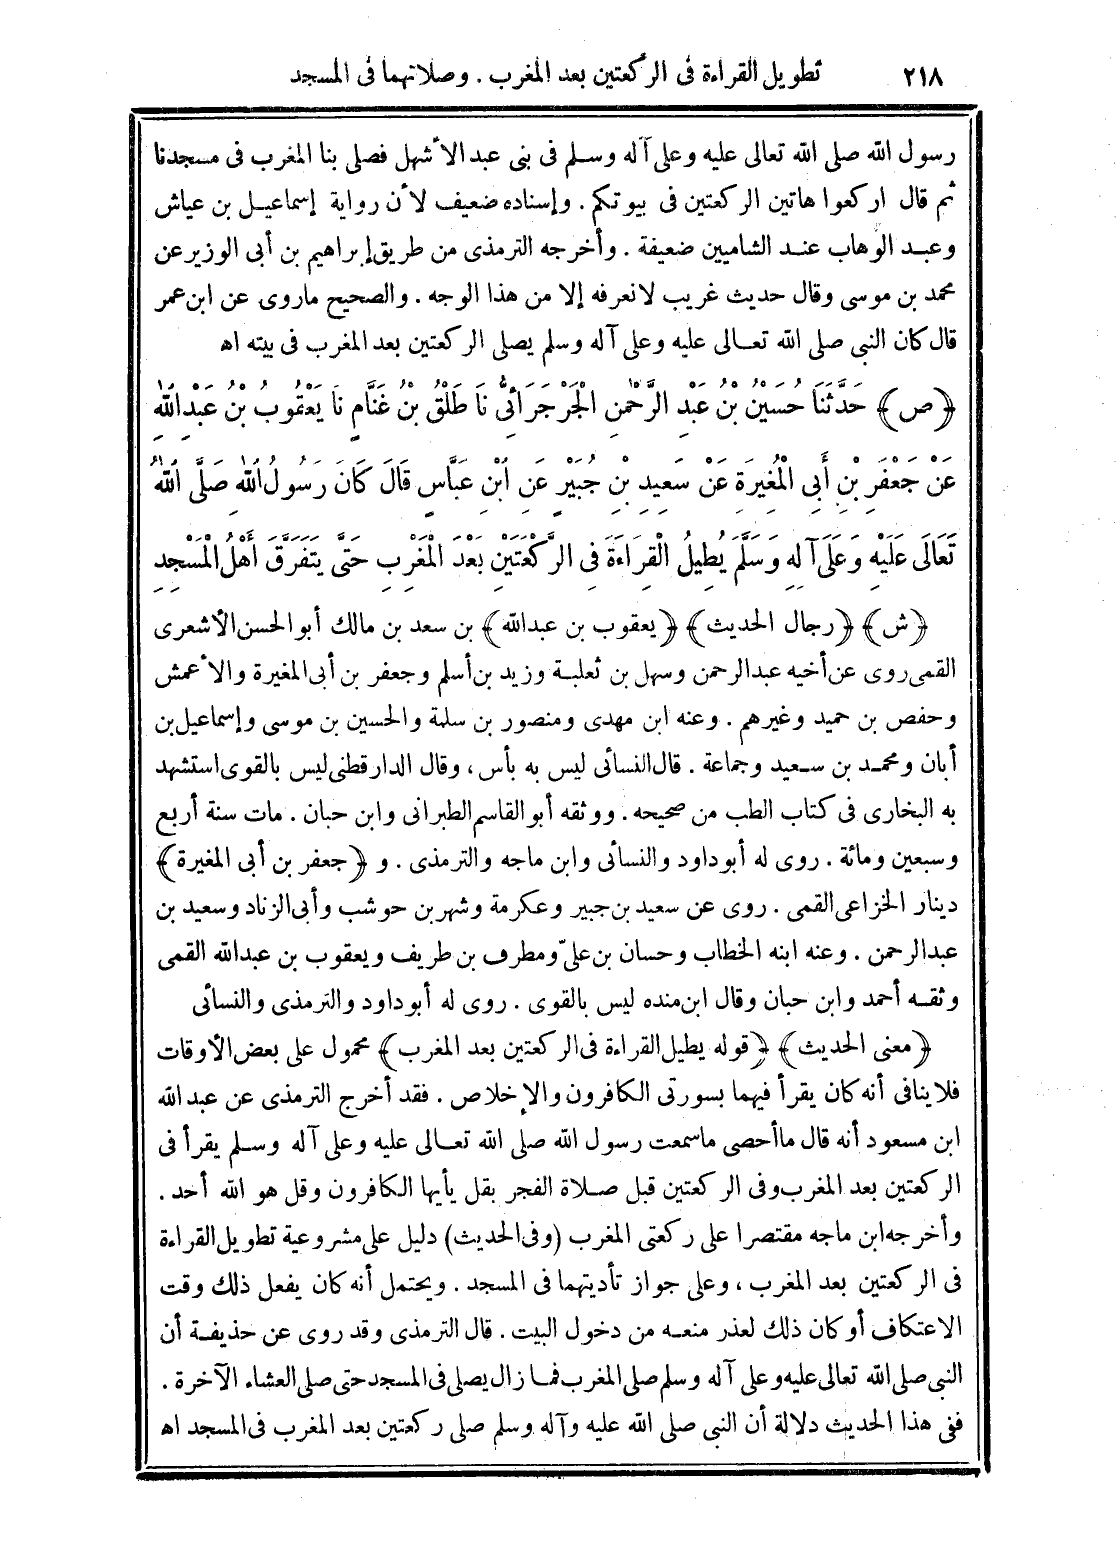 ٢١٨ تطويل القراءة فى الركعتين بعد المغرب . وصلاتهما فى المسجد
رسول الله صلى الله تعالى عليه وعلى آله وسلم فى بنى عبد الأشهل فصلى بنا المغرب فى مسجدنا
ثم قال اركعوا هاتين الركعتين فى بيوتكم . وإسناده ضعيف لأن رواية إسماعيل بن عياش
وعبد الوهاب عند الشاميين ضعيفة . وأخرجه الترمذى من طريق إبراهيم بن أبى الوزير عن
محمد بن موسى وقال حديث غريب لا نعرفه إلا من هذا الوجه . والصحيح ماروى عن ابن عمر
قال كان النبى صلى الله تعالى عليه وعلى آله وسلم يصلى الركعتين بعد المغرب فى بيته اه
﴿ص﴾ حَدَّثَنَا حُسَيْنُ بْنُ عَبْدِ الرَّحْمٰنِ الْجَرْجَرَائِىُّ نَا طَلْقُ بْنُ غَنَّامٍ نَا يَعْقُوبُ بْنُ عَبْدِ اللهِ
عَنْ جَعْفَرِ بْنِ أَبِى الْمُغِيرَةِ عَنْ سَعِيدِ بْنِ جُبَيْرٍ عَنِ ابْنِ عَبَّاسٍ قَالَ كَانَ رَسُولُ اللهِ صَلَّى اللهُ
تَعَالَى عَلَيْهِ وَعَلَى آلِهِ وَسَلَّمَ يُطِيلُ الْقِرَاءَةَ فِى الرَّكْعَتَيْنِ بَعْدَ الْمَغْرِبِ حَتَّى يَتَفَرَّقَ أَهْلُ الْمَسْجِدِ
﴿ش﴾ ﴿رجال الحديث﴾ ﴿يعقوب بن عبدالله﴾ بن سعد بن مالك أبو الحسن الأشعرى
القمى روى عن أخيه عبدالرحمن وسهل بن ثعلبة وزيد بن أسلم وجعفر بن أبى المغيرة والأعمش
وحفص بن حميد وغيرهم . وعنه ابن مهدى ومنصور بن سلمة والحسين بن موسى وإسماعيل بن
أبان ومحمد بن سعيد وجماعة . قال النسائى ليس به بأس ، وقال الدارقطنى ليس بالقوى استشهد
به البخارى فى كتاب الطب من صحيحه . ووثقه أبو القاسم الطبرانى وابن حبان . مات سنة أربع
وسبعين ومائة . روى له أبوداود والنسائى وابن ماجه والترمذى . و ﴿جعفر بن أبى المغيرة﴾
دينار الخزاعى القمى . روى عن سعيد بن جبير وعكرمة وشهر بن حوشب وأبى الزناد وسعيد بن
عبدالرحمن . وعنه ابنه الخطاب وحسان بن علىّ ومطرف بن طريف ويعقوب بن عبدالله القمى
وثقه أحمد وابن حبان وقال ابن منده ليس بالقوى . روى له أبوداود والترمذى والنسائى
﴿معنى الحديث﴾ ﴿قوله يطيل القراءة فى الركعتين بعد المغرب﴾ محمول على بعض الأوقات
فلا ينافى أنه كان يقرأ فيهما بسورتى الكافرون والإخلاص . فقد أخرج الترمذى عن عبد الله
ابن مسعود أنه قال ماأحصى ماسمعت رسول الله صلى الله تعالى عليه وعلى آله وسلم يقرأ فى
الركعتين بعد المغرب وفى الركعتين قبل صلاة الفجر بقل يأيها الكافرون وقل هو الله أحد .
وأخرجه ابن ماجه مقتصرا على ركعتى المغرب (وفى الحديث) دليل على مشروعية تطويل القراءة
فى الركعتين بعد المغرب ، وعلى جواز تأديتهما فى المسجد . ويحتمل أنه كان يفعل ذلك وقت
الاعتكاف أو كان ذلك لعذر منعه من دخول البيت . قال الترمذى وقد روى عن حذيفة أن
النبى صلى الله تعالى عليه وعلى آله وسلم صلى المغرب فما زال يصلى فى المسجد حتى صلى العشاء الآخرة .
ففى هذا الحديث دلالة أن النبى صلى الله عليه وآله وسلم صلى ركعتين بعد المغرب فى المسجد اه